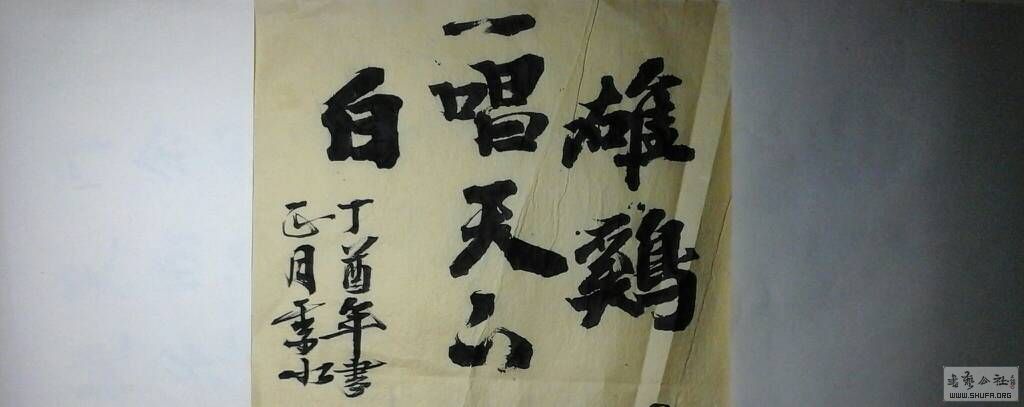 雄鷄
一唱天下
白
丁酉年書
正月
书艺公社
WWW.SHUFA.ORG